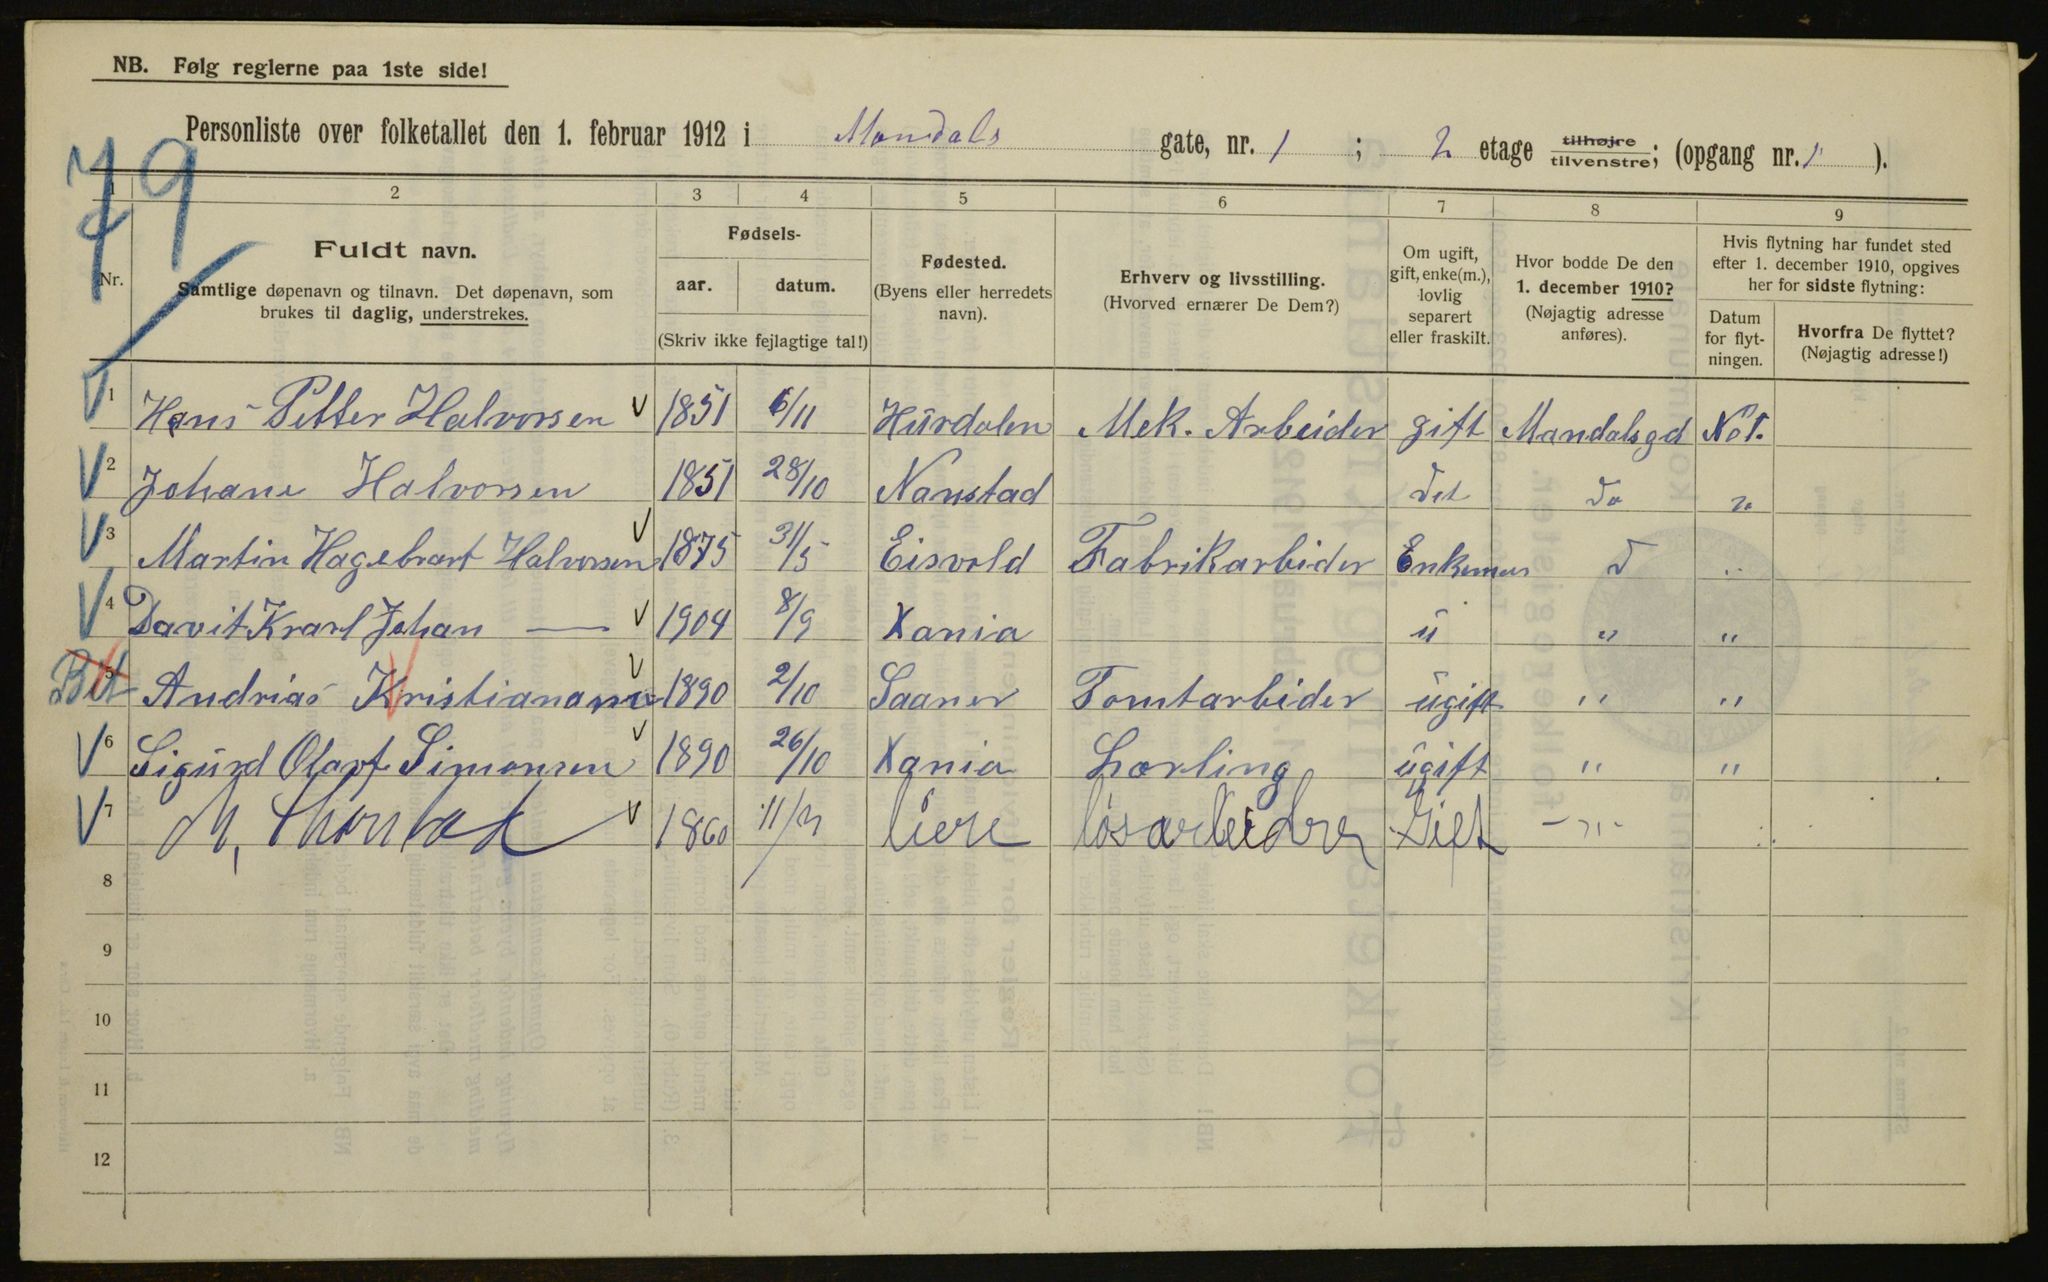 NB. Følg reglerne paa 1ste side!
Personliste over folketallet den 1. februar 1912 i Mandals gate, nr. 1 ; 2 etage tilhøjre tilvenstre; (opgang nr. 1 ).
79
1 2 3 4 5 6 7 8 9
Nr.
Fuldt navn.
Samtlige døpenavn og tilnavn. Det døpenavn, som
brukes til daglig, understrekes.
Fødsels-
aar. datum.
(Skriv ikke fejlagtige tal!)
Fødested.
(Byens eller herredets
navn).
Erhverv og livsstilling.
(Hvorved ernærer De Dem?)
Om ugift,
gift, enke(m.),
lovlig
separert
eller fraskilt.
Hvor bodde De den
1. december 1910?
(Nøjagtig adresse
anføres).
Hvis flytning har fundet sted
efter 1. december 1910, opgives
her for sidste flytning:
Datum
for flyt-
ningen.
Hvorfra De flyttet?
(Nøjagtig adresse!)
1 Hans Petter Halvorsen 1851 6/11 Hurdalen Mek. Arbeider gift Mandalsgd No 1.
2 Johane Halvorsen 1851 28/10 Nanstad det do "
3 Martin Hagebrart Halvorsen 1875 31/5 Eisvold Fabrikarbider Enkeman d "
4 Davit Krarl Johan — 1904 8/9 Xania u " "
5 Andrias Kristiansen 1890 2/10 Saaner Tomtarbider ugift " "
6 Sigurd Olarf Simonsen 1890 26/10 Xania Lærling ugift " "
7 M, 1860 Liere løsarbeider Gift - " -
8
9
10
11
12